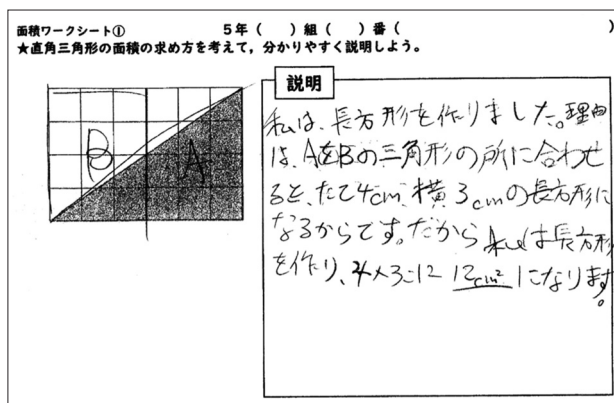 面積ワークシート① 5年( )組( )番( )
★直角三角形の面積の求め方を考えて,分かりやすく説明しよう。
B
A
説明
私は、長方形を作りました。理由
は、AをBの三角形の所に合わせ
ると、たて4cm、横3cmの長方形に
なるからです。だから 私は長方形
を作り、4×3=12 12cm²になります。